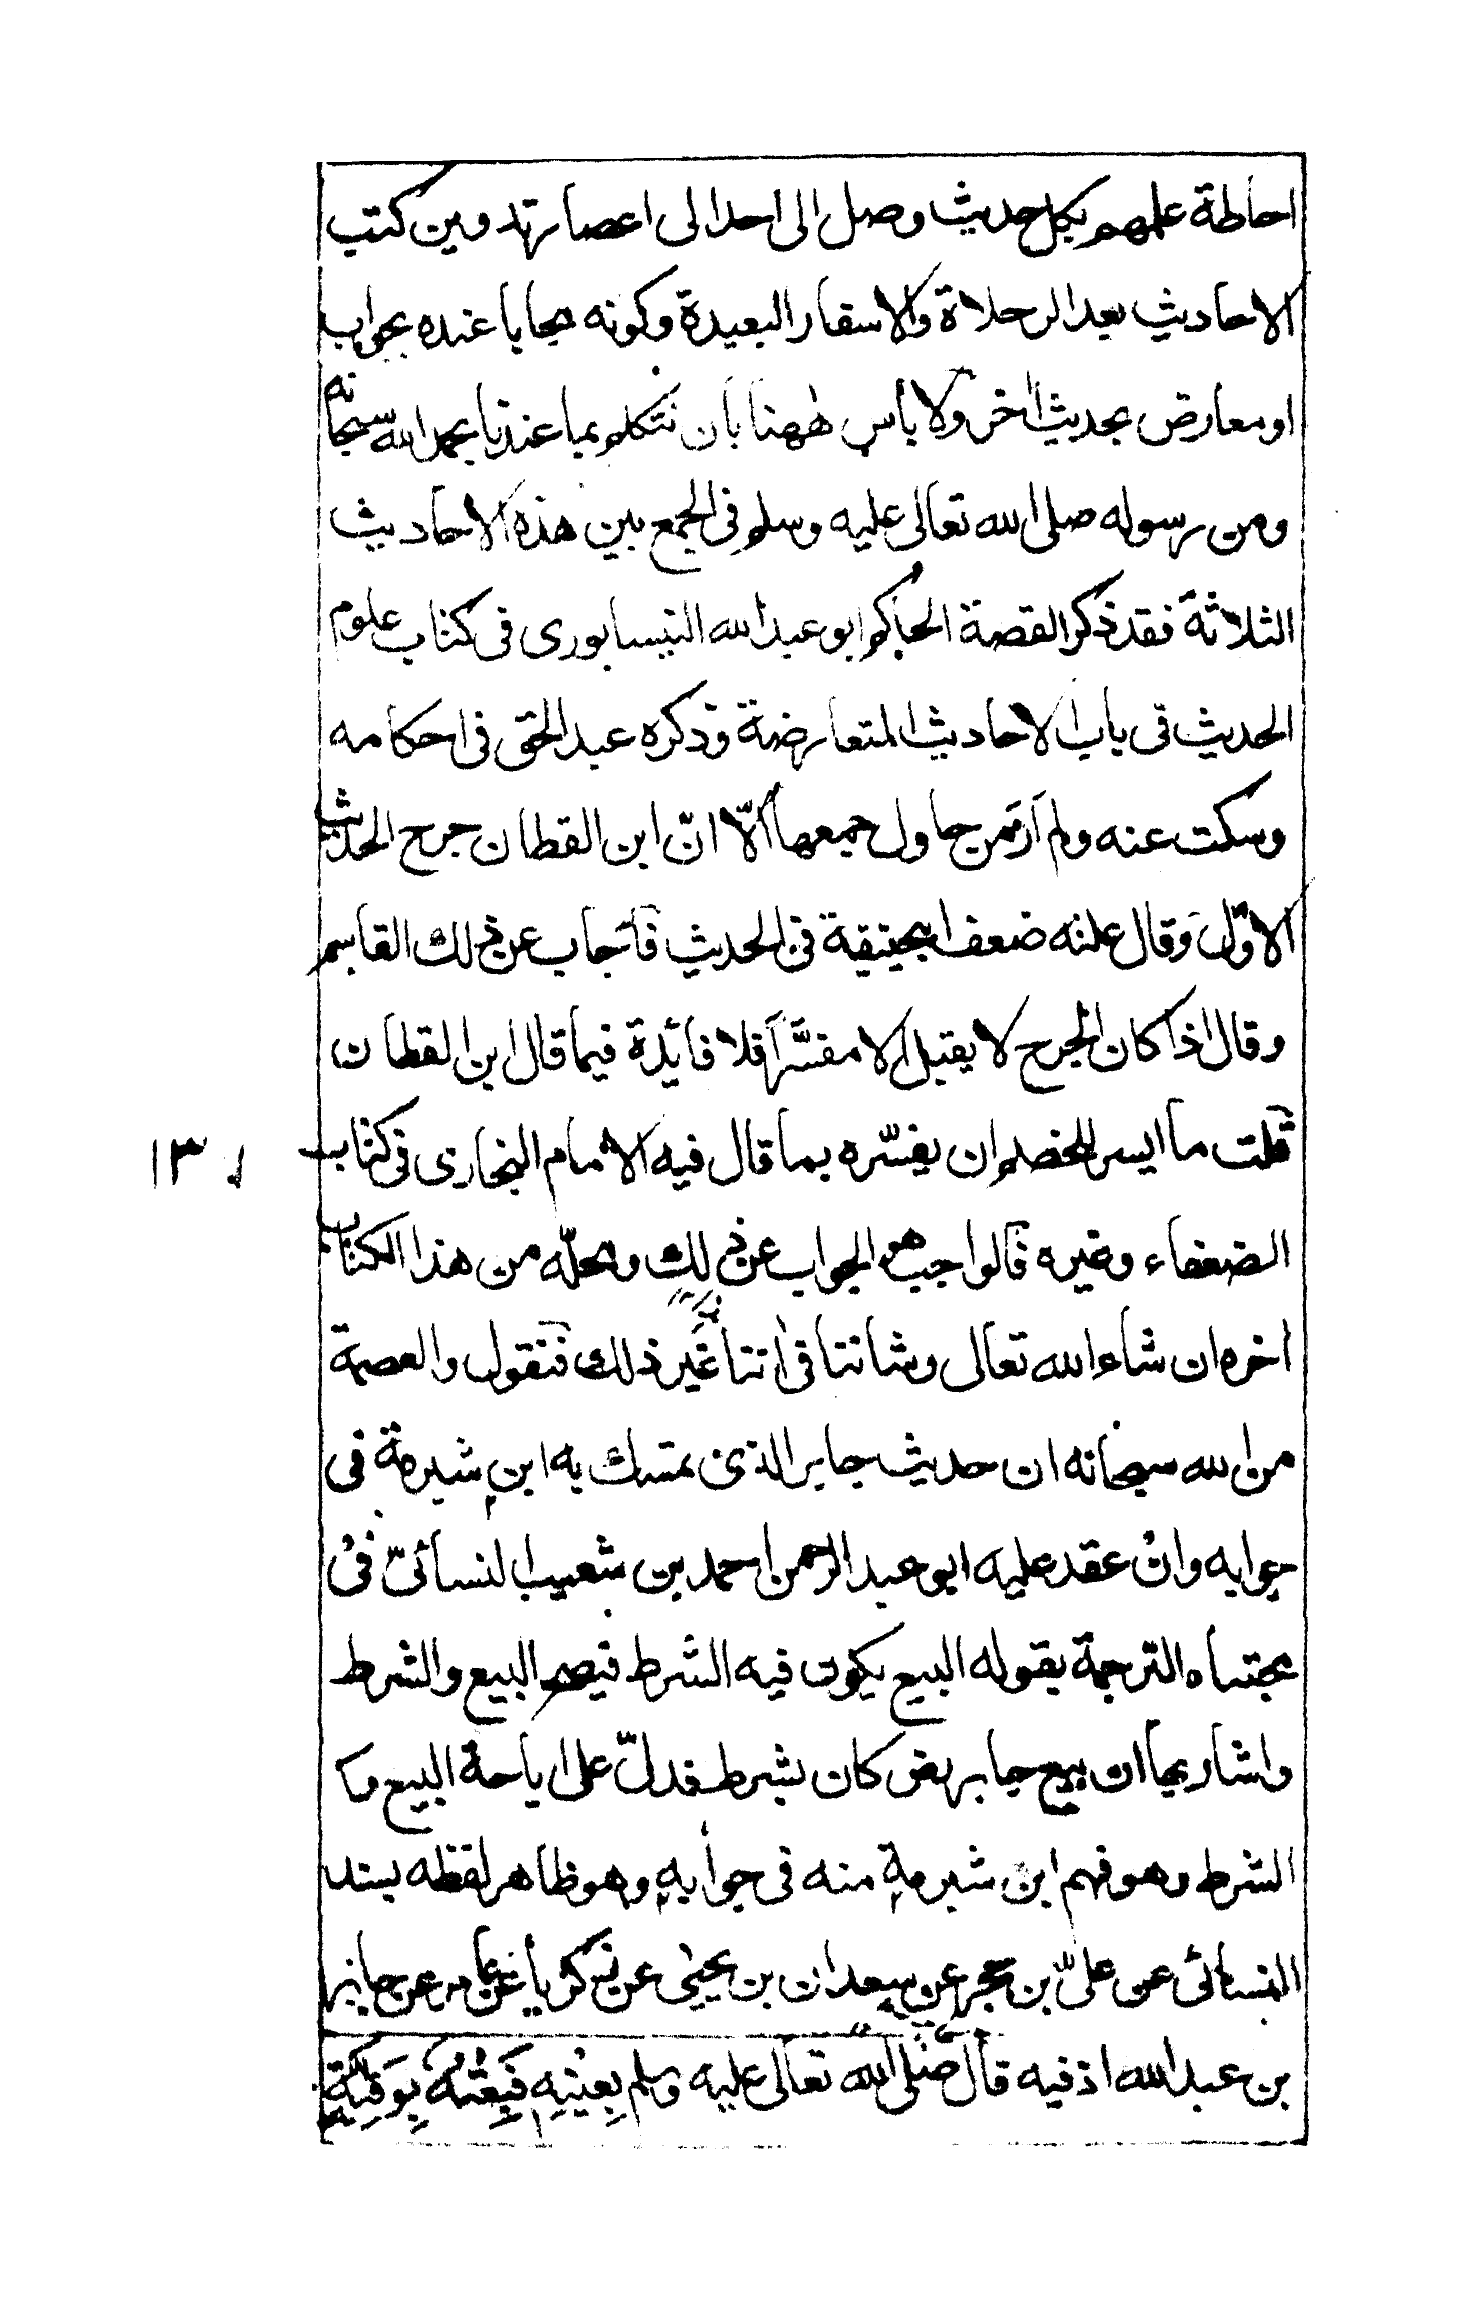 احاطة علمهم بكل حديث وصل الى احد الى اعصارتهد وبين كتب
الاحاديث بعد الرحلاة والاسفار البعيدة وكونه مجابا عنده بجواب
او معارض بحديث اخر ولا بأس ههنا بأن نتكلم بما عندنا بحمد الله سبحانه
ومن رسوله صلى الله تعالى عليه وسلم فى الجمع بين هذه الاحاديث
الثلاثة فقد ذكر القصة الحاكم ابو عبد الله النيسابورى فى كتاب علوم
الحديث فى باب الاحاديث المتعارضة وذكره عبد الحق فى احكامه
وسكت عنه ولم أر من حاول جمعها الّا انّ ابن القطان جرح الحديث
الاوّل وقال علته ضعف ابيحنيفة فى الحديث فأجاب عن ذلك القاسم
وقال اذا كان الجرح لا يقبل الا مفسَّرا فلا فائدة فيما قال ابن القطان
قلت ما ايسر للخصم ان يفسّره بما قال فيه الامام البخارى فى كتاب
الضعفاء وغيره فالواجب هو الجواب عن ذلك ومحلّه من هذا الكتاب
اخره ان شاء الله تعالى وشاننا فى اننا غير ذلك فنقول والعصمة
من الله سبحانه ان حديث جابر الذى تمسك به ابن شبرمة فى
جوابه وانْ عقد عليه ابو عبد الرحمن احمد بن شعيب النسائىّ فى
مجتباه الترجمة بقوله البيع يكون فيه الشرط فيصح البيع والشرط
واشار بها ان بيع جابر رض كان بشرط فدلّ على اباحة البيع وكا
الشرط وهو فهم ابن شبرمة منه فى جوابه وهو ظاهر لفظه بسند
النسائى عن علىّ بن حجر عن سعدان بن يحيى عن زكريا عن عامر عن جابر
بن عبد الله اذ فيه قال صلى الله تعالى عليه وسلم بعنيه فَبِعْتُهُ بِوَقِيَّةٍ
١٣١